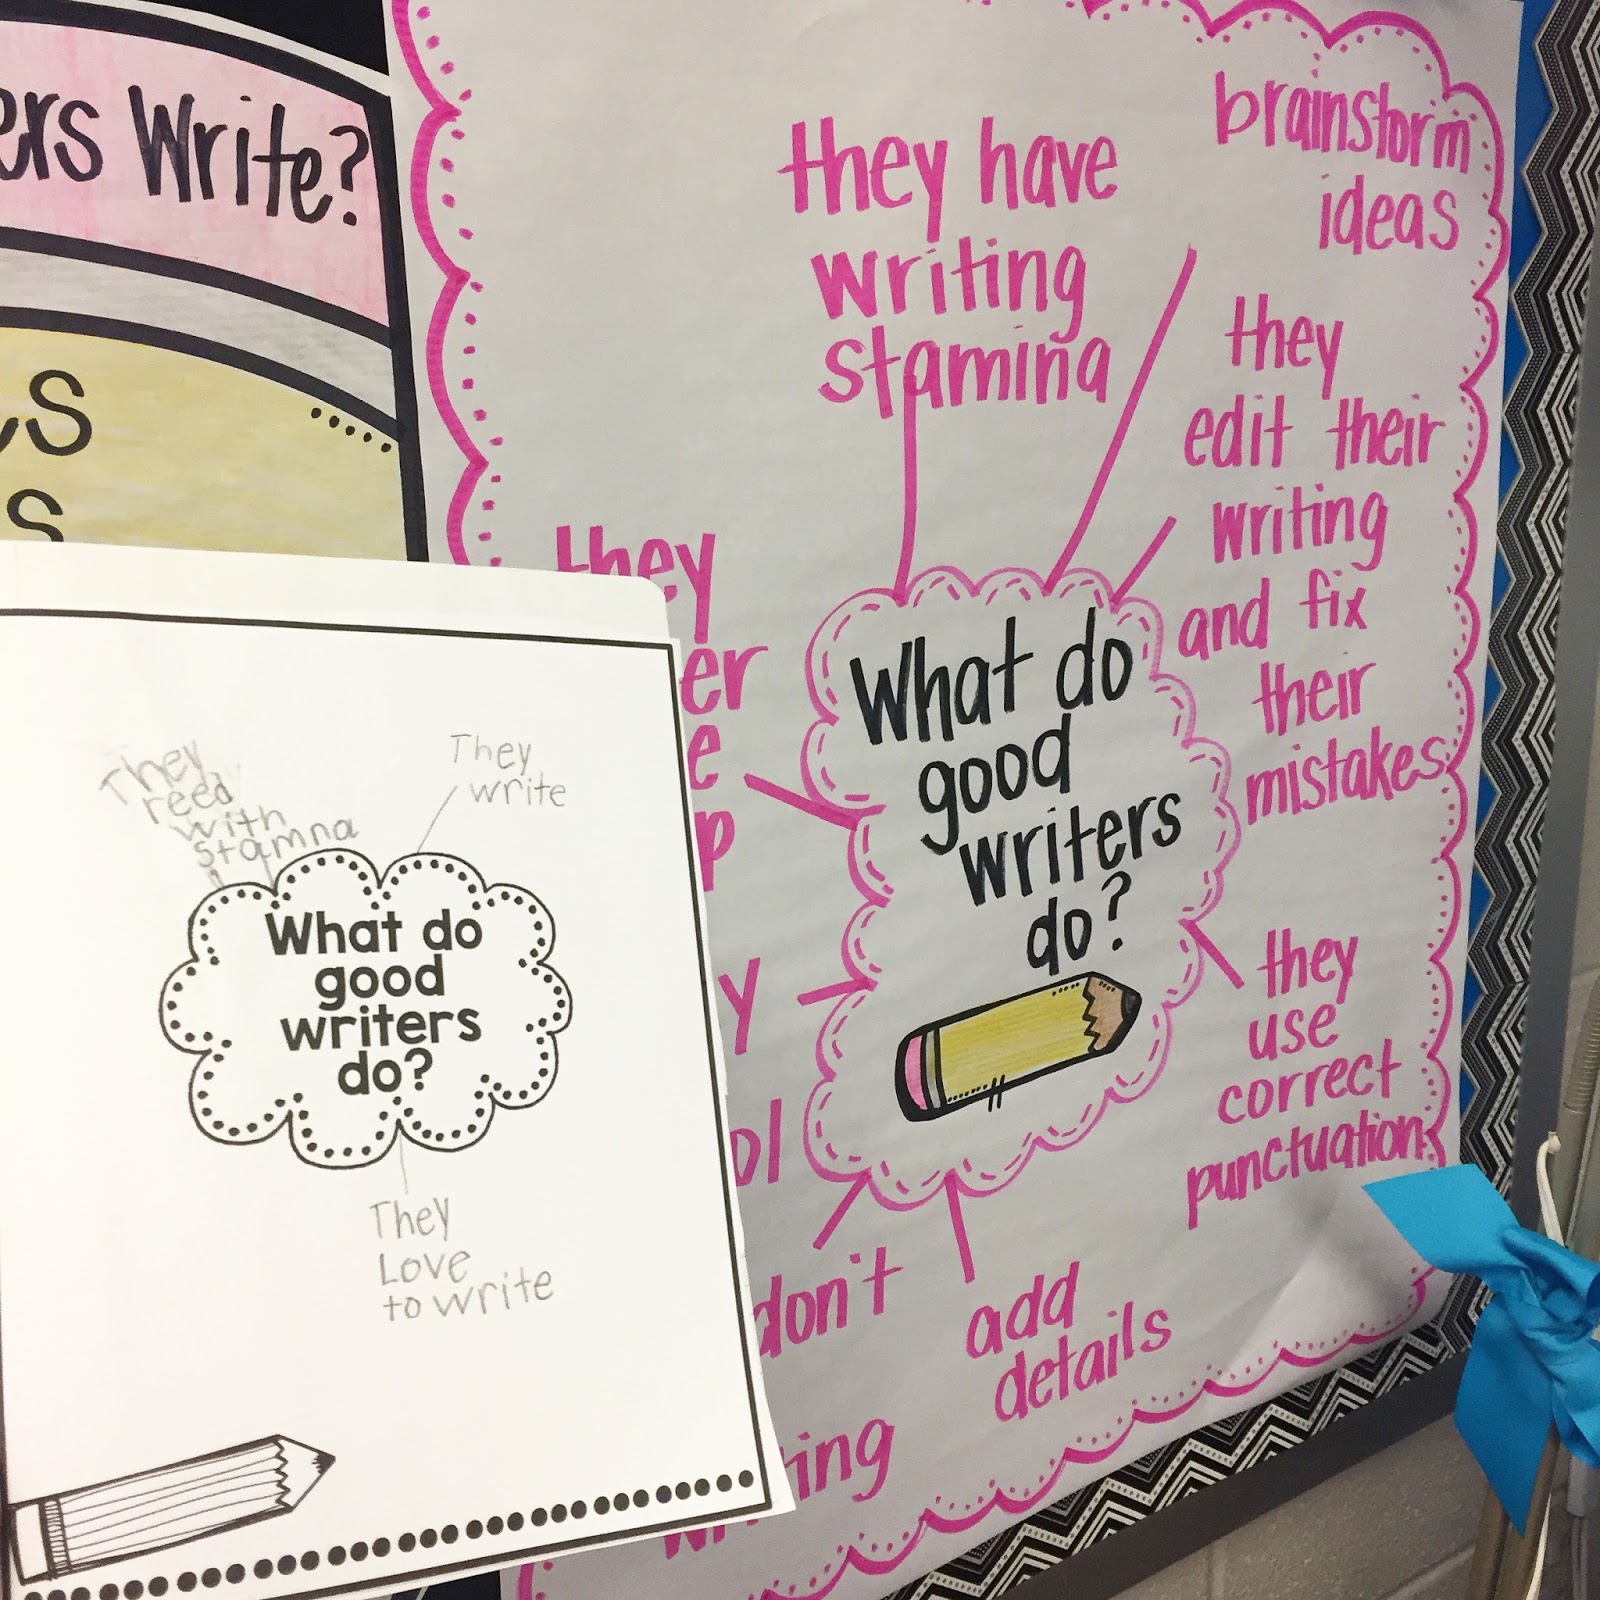 Write?
they have
writing
stamina
brainstorm
ideas
they
edit their
writing
and fix
their
mistakes
they
What do
good
writers
do?
they
use
correct
punctuation
don't
add
details
They
reed
with
stamna
They
write
What do
good
writers
do?
They
Love
to write